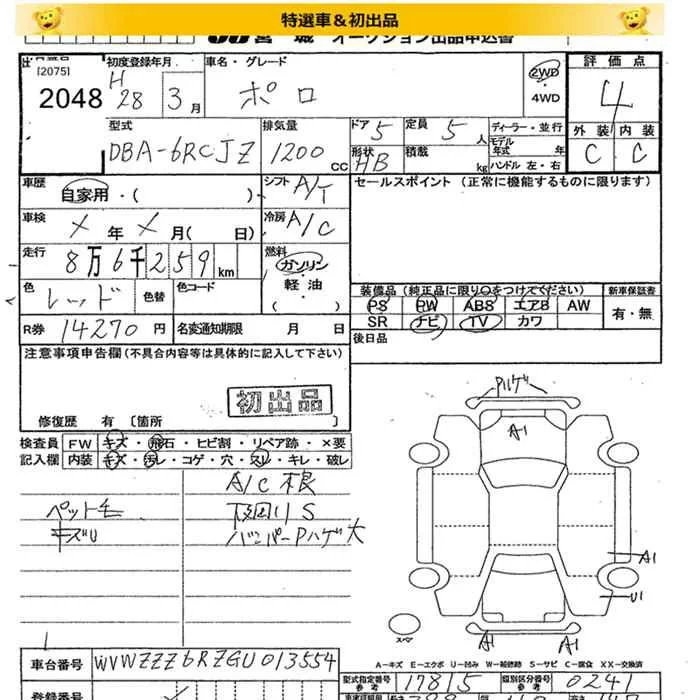 特選車＆初出品
宮 城 オークション出品申込書
[2075]
2048
初度登録年月
H 28 3月
車名・グレード
ポロ
2WD
4WD
評価点
4
型式
DBA-6RCJZ
排気量
1200 CC
ドア 5
定員 5 人
ディーラー・並行
モデル年式 年
形状 HB
積載 kg
ハンドル 左・右
外装 内装
C C
車歴
自家用・( )
シフト A/T
セールスポイント (正常に機能するものに限ります)
車検
メ 年 メ 月( 日)
冷房 A/C
走行
8万6千259km
燃料
ガソリン
軽・油
( )
色
レッド
色替
色コード
装備品 (純正品に限り○をつけてください)
新車保証書
PS PW ABS エアB AW
有・無
SR ナビ TV カワ
R券 14270 円
名変通知期限 月 日
後日品
注意事項申告欄 (不具合内容等は具体的に記入して下さい)
初出品
修復歴 有 〔箇所 〕
検査員 FW キズ・飛石・ヒビ割・リペア跡・×要
記入欄 内装 キズ・汚レ・コゲ・穴・スレ・キレ・破レ
A/C 根
ペット毛
下回りS
キズU
バンパーPハゲ大
Pハゲ
A1
A1
U1
スペア
A1 A1
A-キズ E-エクボ U-凹み W-補修跡 S-サビ C-腐食 XX-交換済
車台番号 WVWZZZ6RZGU013554
型式指定番号 参考 17815
類別区分番号 参考 0241
登録番号